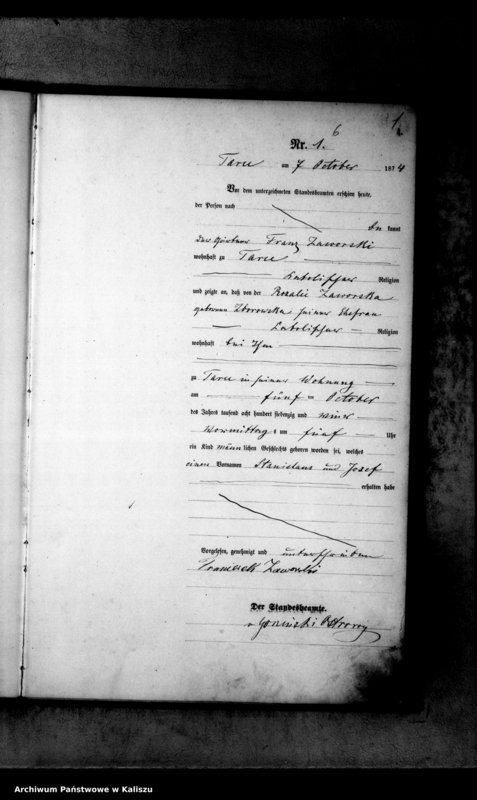 1.
6
Nr. 1.
Tarce am 7 October 1874
Vor dem unterzeichneten Standesbeamten erschien heute,
der Person nach
bekannt
der Gärtner Franz Zaworski
wohnhaft zu Tarce
katolischer Religion
und zeigte an, daß von der Rozalie Zaworska
geborenen Zborowska seiner Ehefrau
katolischer Religion
wohnhaft bei Ihm
zu Tarce in seiner Wohnung
am fünf ten October
des Jahres tausend acht hundert siebenzig und vier
Vormittags um fünf Uhr
ein Kind männlichen Geschlechts geboren worden sei, welches
einen Vornamen Stanislaus und Josef
erhalten habe
Vorgelesen, genehmigt und unterschrieben
Franciszek Zaworski
Der Standesbeamte.
v Gorzeński Ostroróg
Archiwum Państwowe w Kaliszu